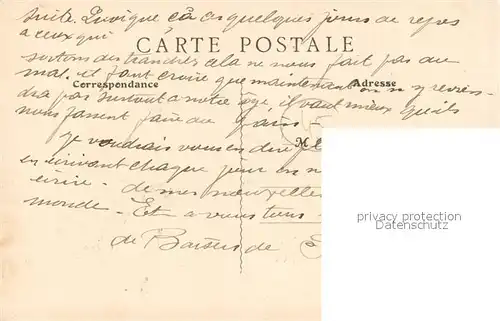 suite. Puisque ça es quelques jours de repos
a ceux qui
CARTE POSTALE
sortons des tranchées cela ne nous fait pas du
mal. il faut croire que maintenant on n'y revien-
Correspondance
Adresse
dra pas surtout a notre age, il vaut mieux qu'ils
nous fassent faire du pain -
M
Je voudrais vous en dire pl
en écrivant chaque jour on n
écrire. - de mes nouvelles
monde - Et a vous tous
de Baisers de
privacy protection
SAMMLER.COM